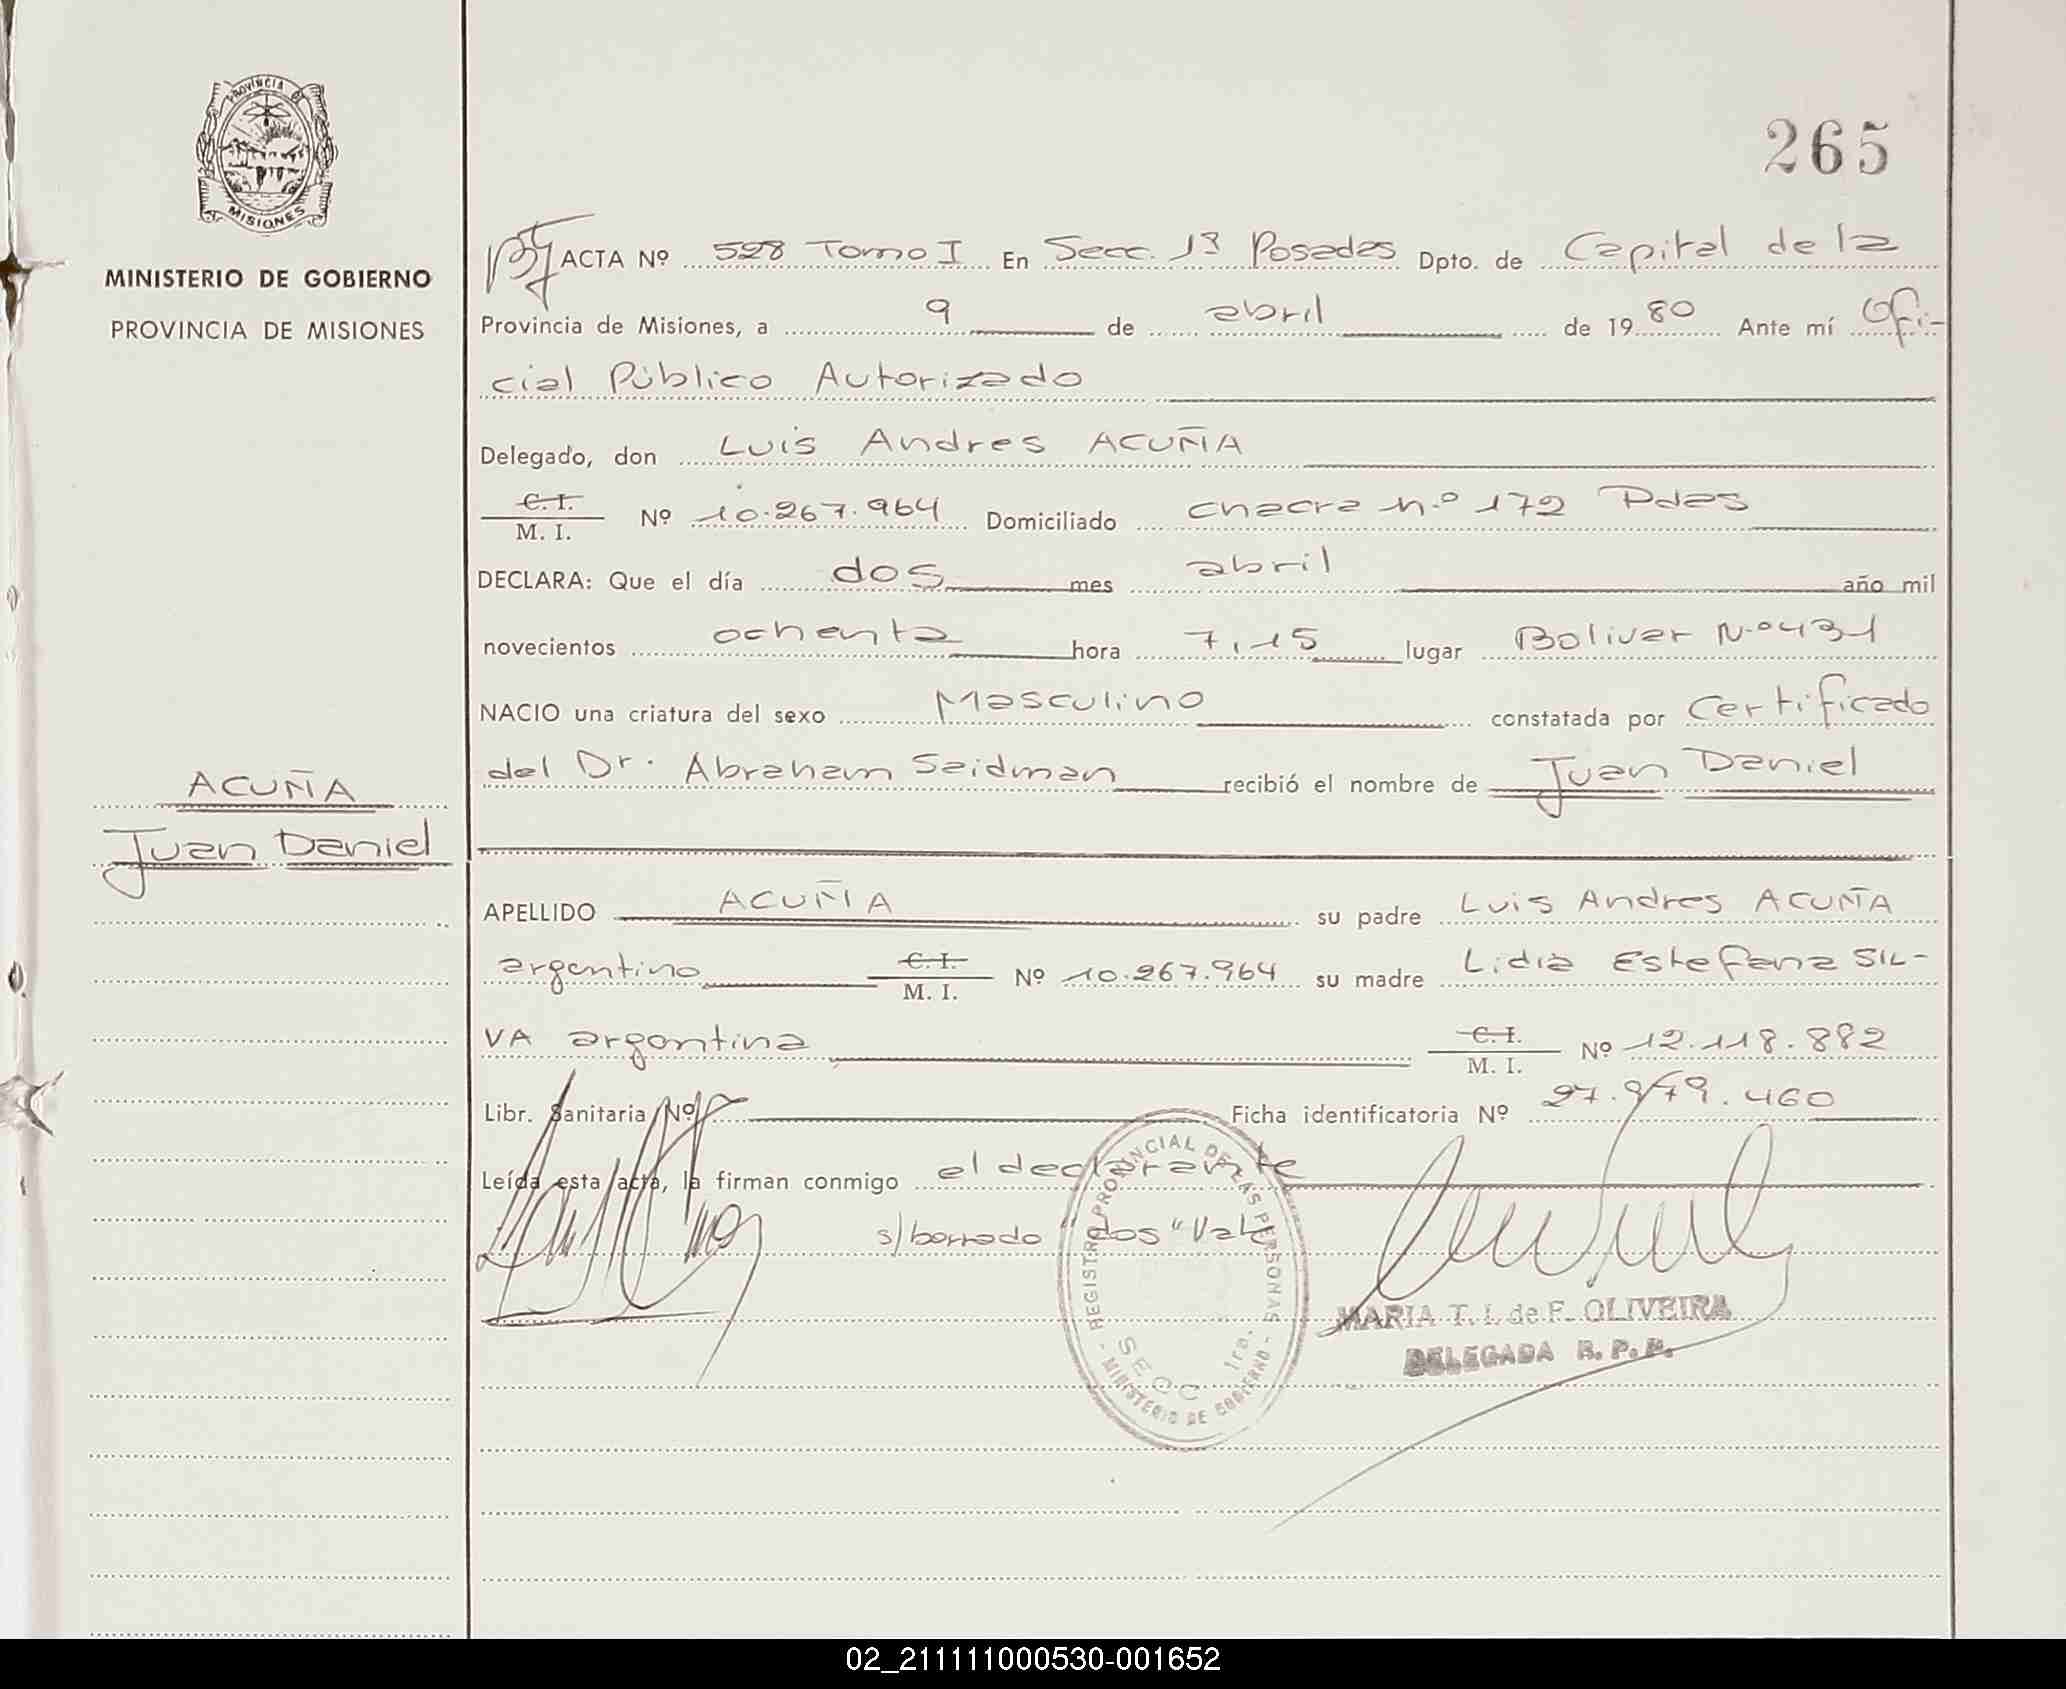 265
PROVINCIA DE
MISIONES
MINISTERIO DE GOBIERNO
PROVINCIA DE MISIONES
ACTA Nº 528 Tomo I En Secc. 1ª Posadas Dpto. de Capital de la
Provincia de Misiones, a 9 de abril de 1980 Ante mí Ofi-
cial Público Autorizado
Delegado, don Luis Andres ACUÑA
C. I.
M. I. Nº 10.267.964 Domiciliado chacra n.º 172 Pdas
DECLARA: Que el día dos mes abril año mil
novecientos ochenta hora 7,15 lugar Bolivar N.º 431
NACIO una criatura del sexo Masculino constatada por Certificado
del Dr. Abraham Saidman recibió el nombre de Juan Daniel
ACUÑA
Juan Daniel
APELLIDO ACUÑA su padre Luis Andres ACUÑA
argentino C. I. M. I. Nº 10.267.964 su madre Lidia Estefana SIL-
VA argentina C. I. M. I. Nº 12.118.882
Libr. Sanitaria Nº Ficha identificatoria Nº 27.979.460
Leída esta acta, la firman conmigo el declarante
s/borrado "dos" Vale
REGISTRO PROVINCIAL DE LAS PERSONAS
SECC 1ra.
- MINISTERIO DE GOBIERNO -
MARIA T. I. de F. OLIVEIRA
DELEGADA R. P. P.
02_211111000530-001652